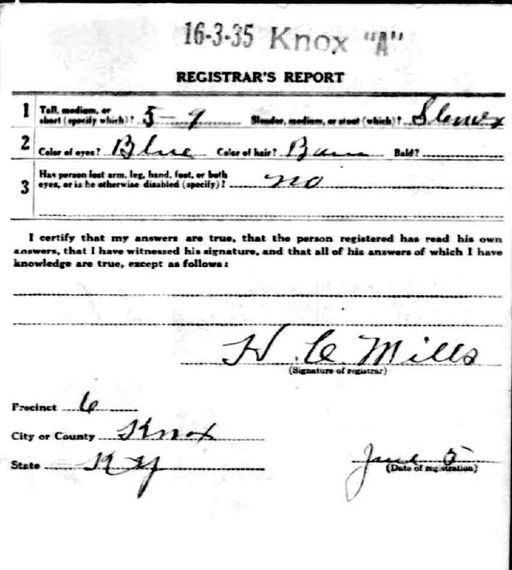 16-3-35 Knox "A"
REGISTRAR'S REPORT
1 Tall, medium, or short (specify which)? 5-9 Slender, medium, or stout (which)? Slender
2 Color of eyes? Blue Color of hair? Bald?
3 Has person lost arm, leg, hand, foot, or both
eyes, or is he otherwise disabled (specify)? no
I certify that my answers are true, that the person registered has read his own
answers, that I have witnessed his signature, and that all of his answers of which I have
knowledge are true, except as follows:
H. C. Mills
(Signature of registrar)
Precinct 6
City or County Knox
State Ky
June 5
(Date of registration)